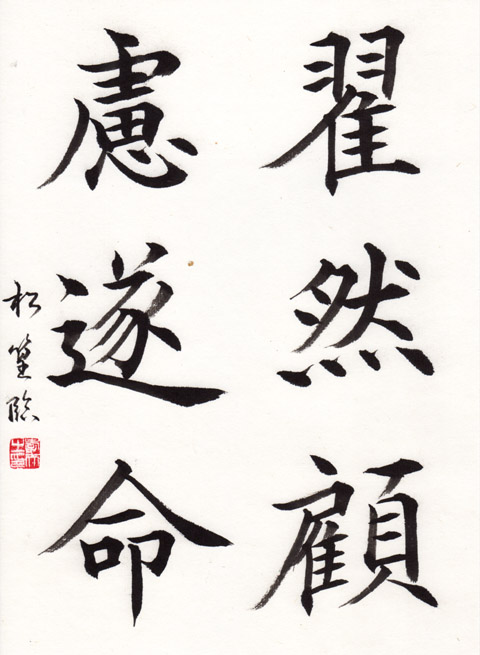 翟然顧
慮遂命
松篁臨